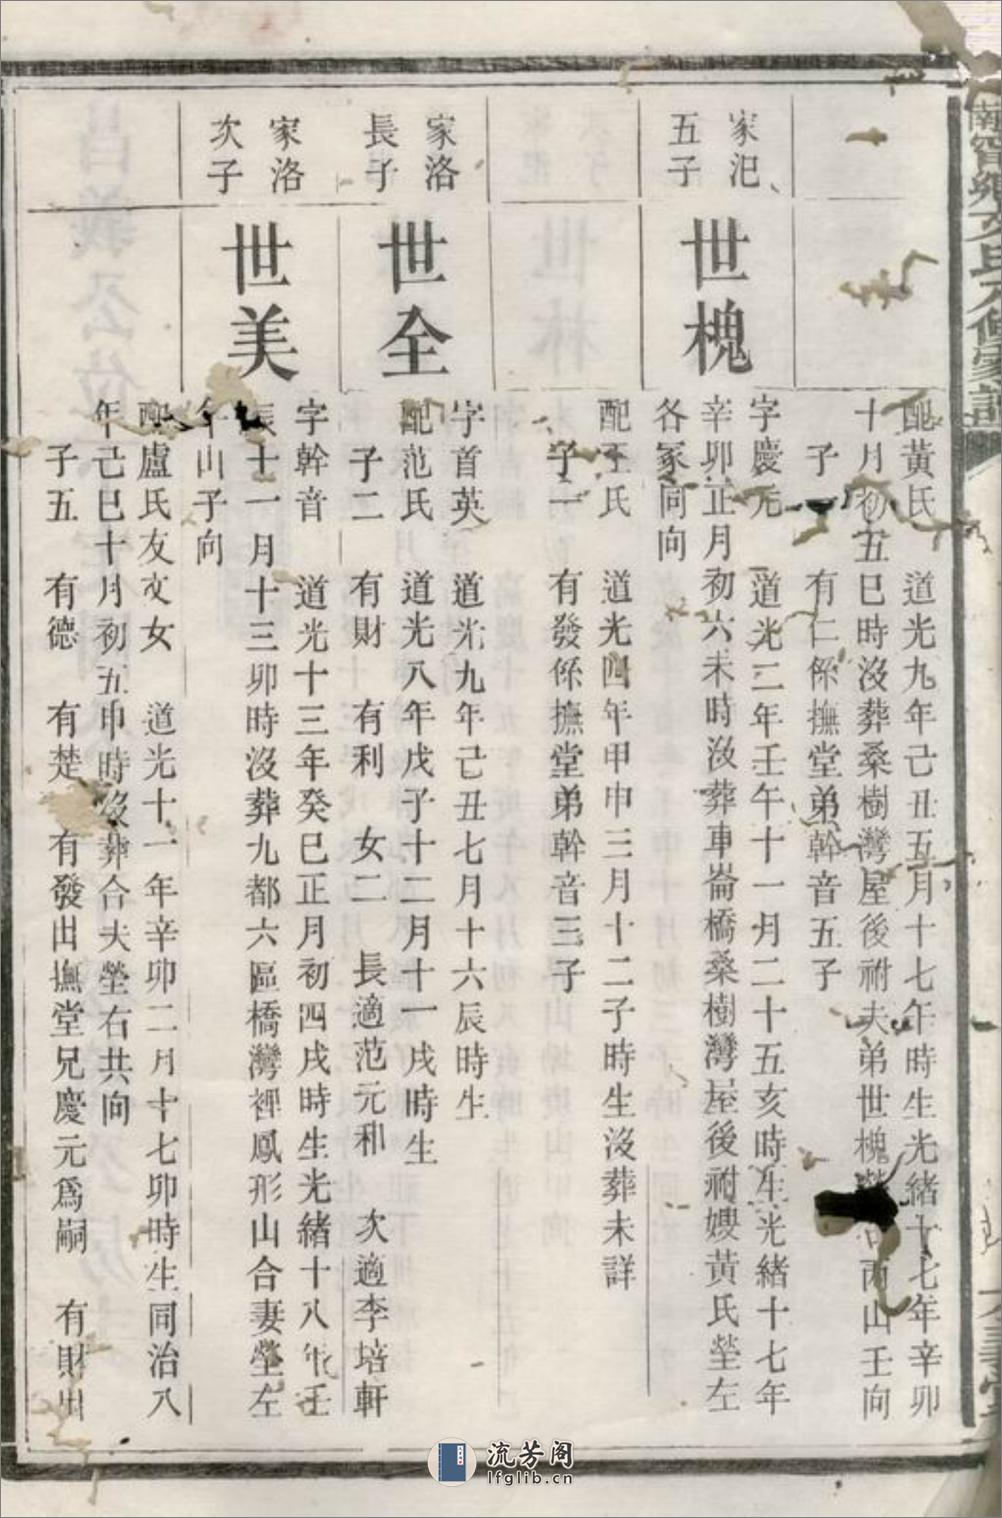 南甯鄉文氏六修家譜
配黃氏 道光九年己丑五月十七午時生光緒十七年辛卯
十月初五巳時沒葬桑樹灣屋後祔夫弟世槐塋右丙山壬向
子一 有仁係撫堂弟幹音五子
家汜
五子
世槐
字慶元 道光二年壬午十一月二十五亥時生光緒十七年
辛卯正月初六未時沒葬車崙橋桑樹灣屋後祔嫂黃氏塋左
各冢同向
配王氏 道光四年甲申三月十二子時生沒葬未詳
子一 有發係撫堂弟幹音三子
家洛
長子
世全
字首英 道光九年己丑七月十六辰時生
配范氏 道光八年戊子十二月十一戌時生
子二 有財 有利 女二 長適范元和 次適李培軒
家洛
次子
世美
字幹音 道光十三年癸巳正月初四戌時生光緒十八年壬
辰十一月十三卯時沒葬九都六區橋灣裡鳳形山合妻塋左
午山子向
配盧氏友文女 道光十一年辛卯二月十七卯時生同治八
年己巳十月初五申時沒葬合夫塋右共向
子五 有德 有楚 有發出撫堂兄慶元爲嗣 有財出
流芳阁
lfglib.cn